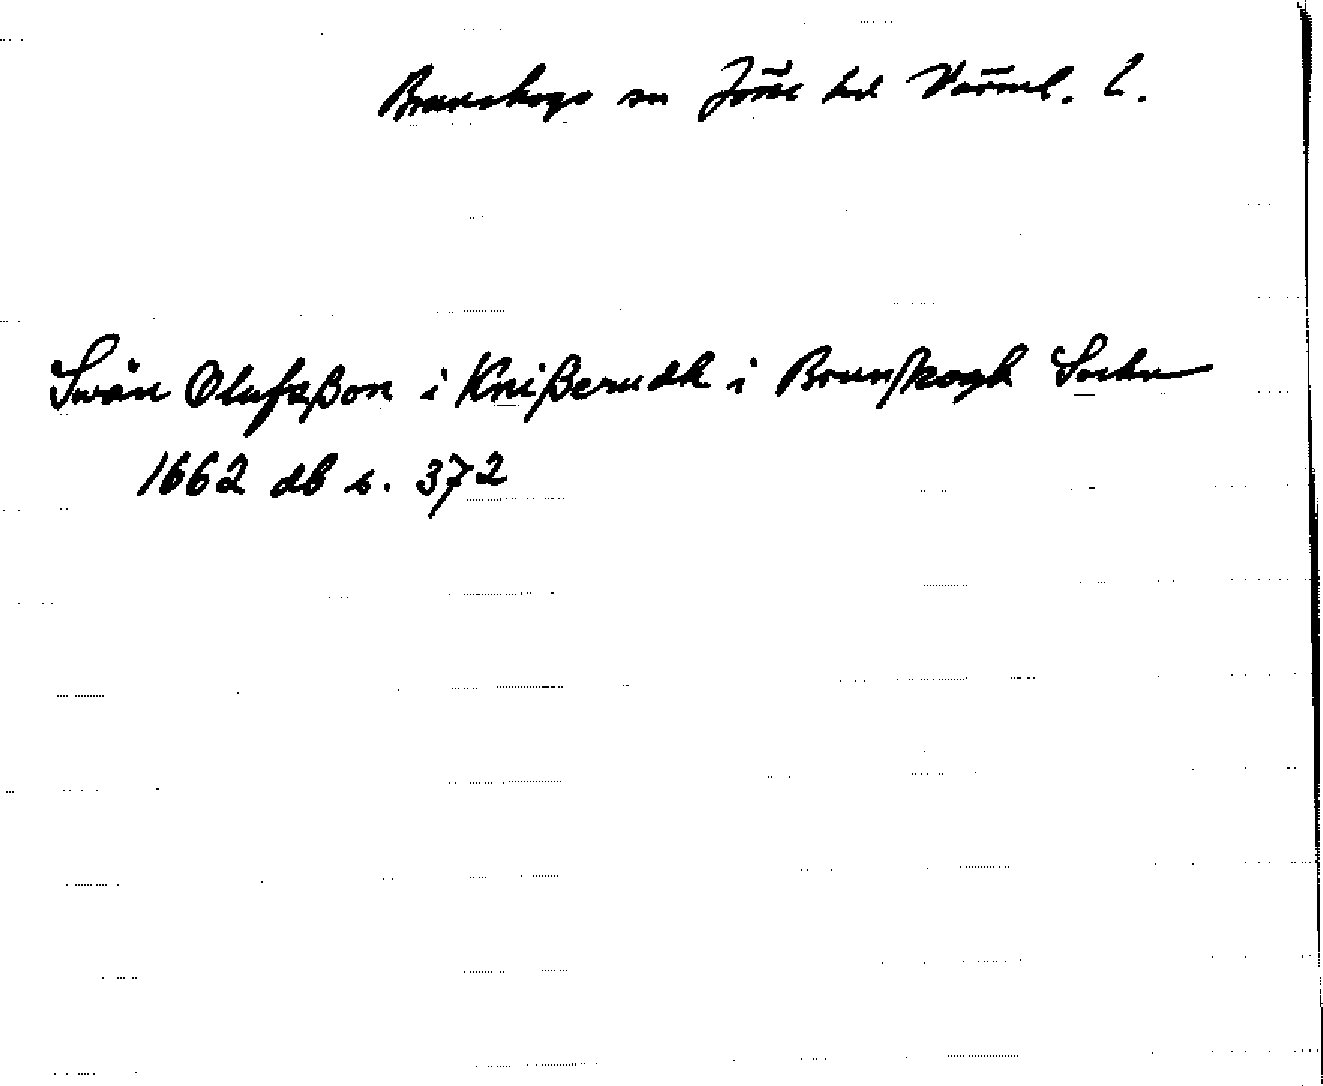 Brunskogs sn Jösse hd Värml. l.
Swän Olufzßon i Knißerudh i Brunskogh Sochn
1662 db s. 372